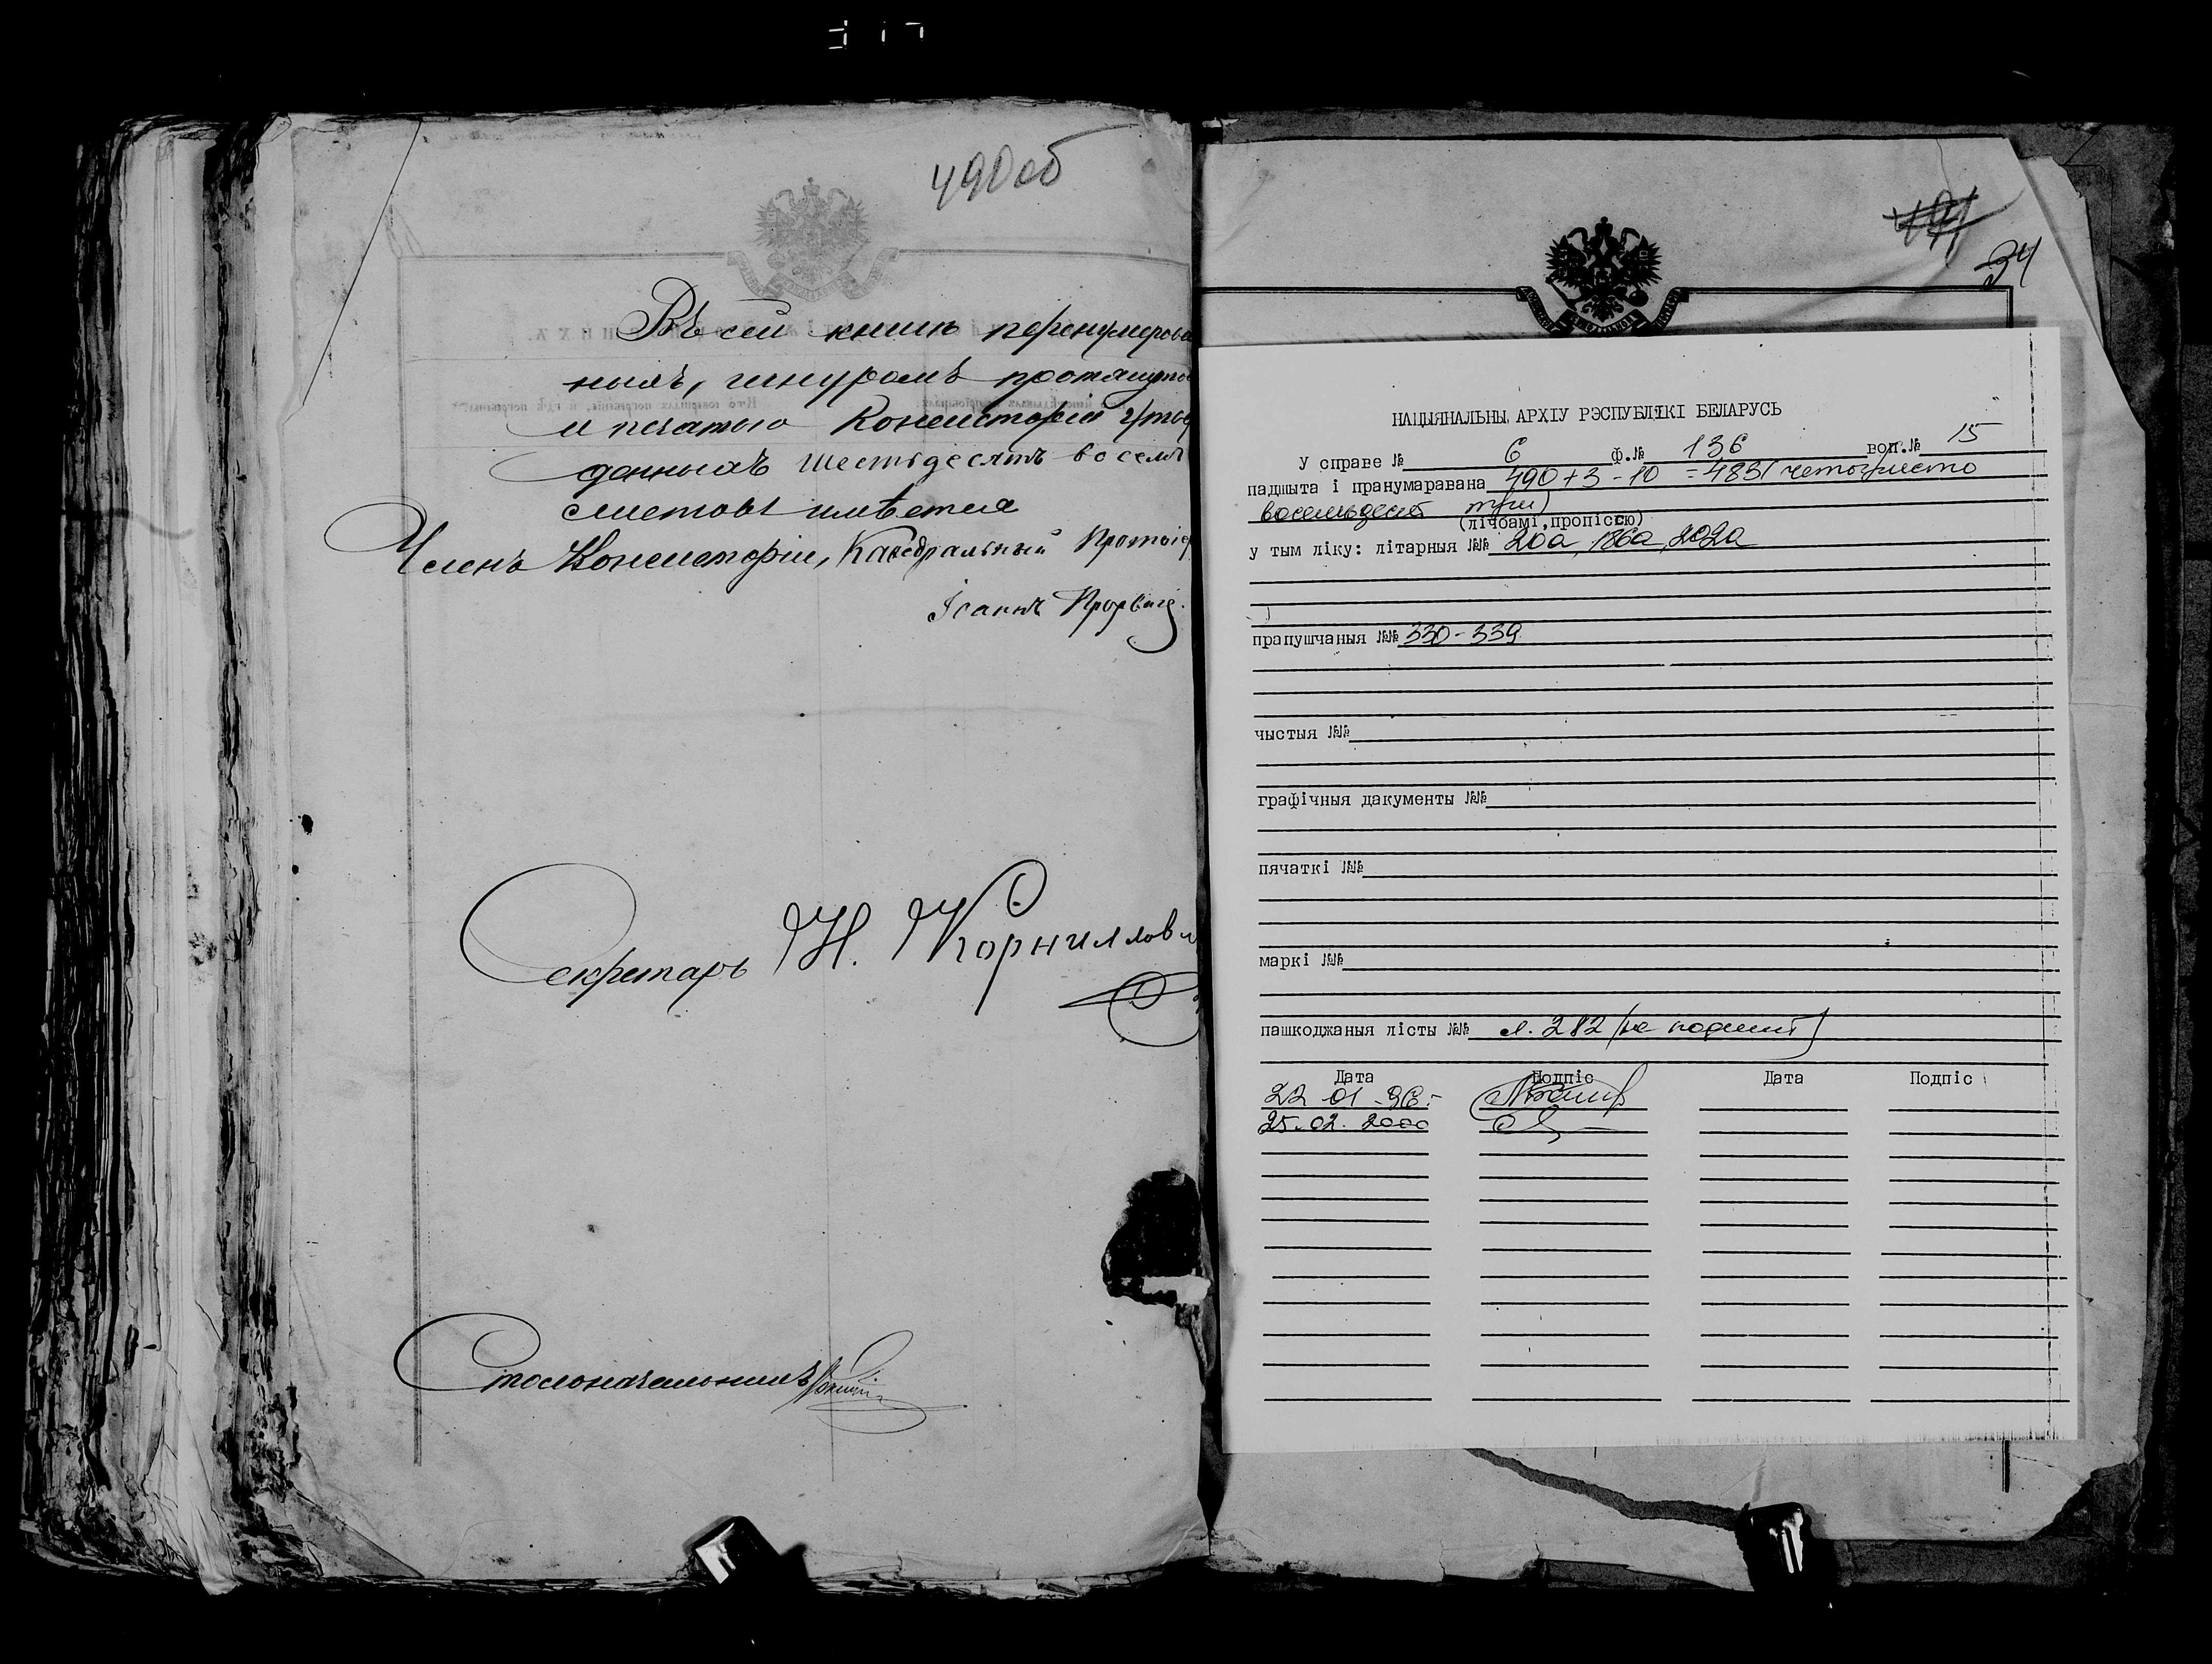 490 об
Въ сей книгѣ перенумерован
ныхъ, шнуромъ протянутых
и печатью Консисторіи утвер
жденныхъ шестьдесятъ восемь
листовъ имѣется
Членъ Консисторіи, Каѳедральный Протоіер
Іоаннъ
Секретарь Н. Корнилов
Столоначальникъ
491
34
НАЦЫЯНАЛЬНЫ АРХІУ РЭСПУБЛІКІ БЕЛАРУСЬ
У справе № 6 ф.№ 136 воп.№ 15
падшыта і пранумаравана 490+3-10 =483 (четыреста
восемьдесят три)
(лічбамі,пропіссю)
у тым ліку: літарныя №№ 20а, 186а, 202а
прапушчаныя №№ 330-339
чыстыя №№
графічныя дакументы №№
пячаткі №№
маркі №№
пашкоджаныя лісты №№ л. 282 (не подшит)
Дата Подпіс Дата Подпіс
22-01-96
25.02.2000